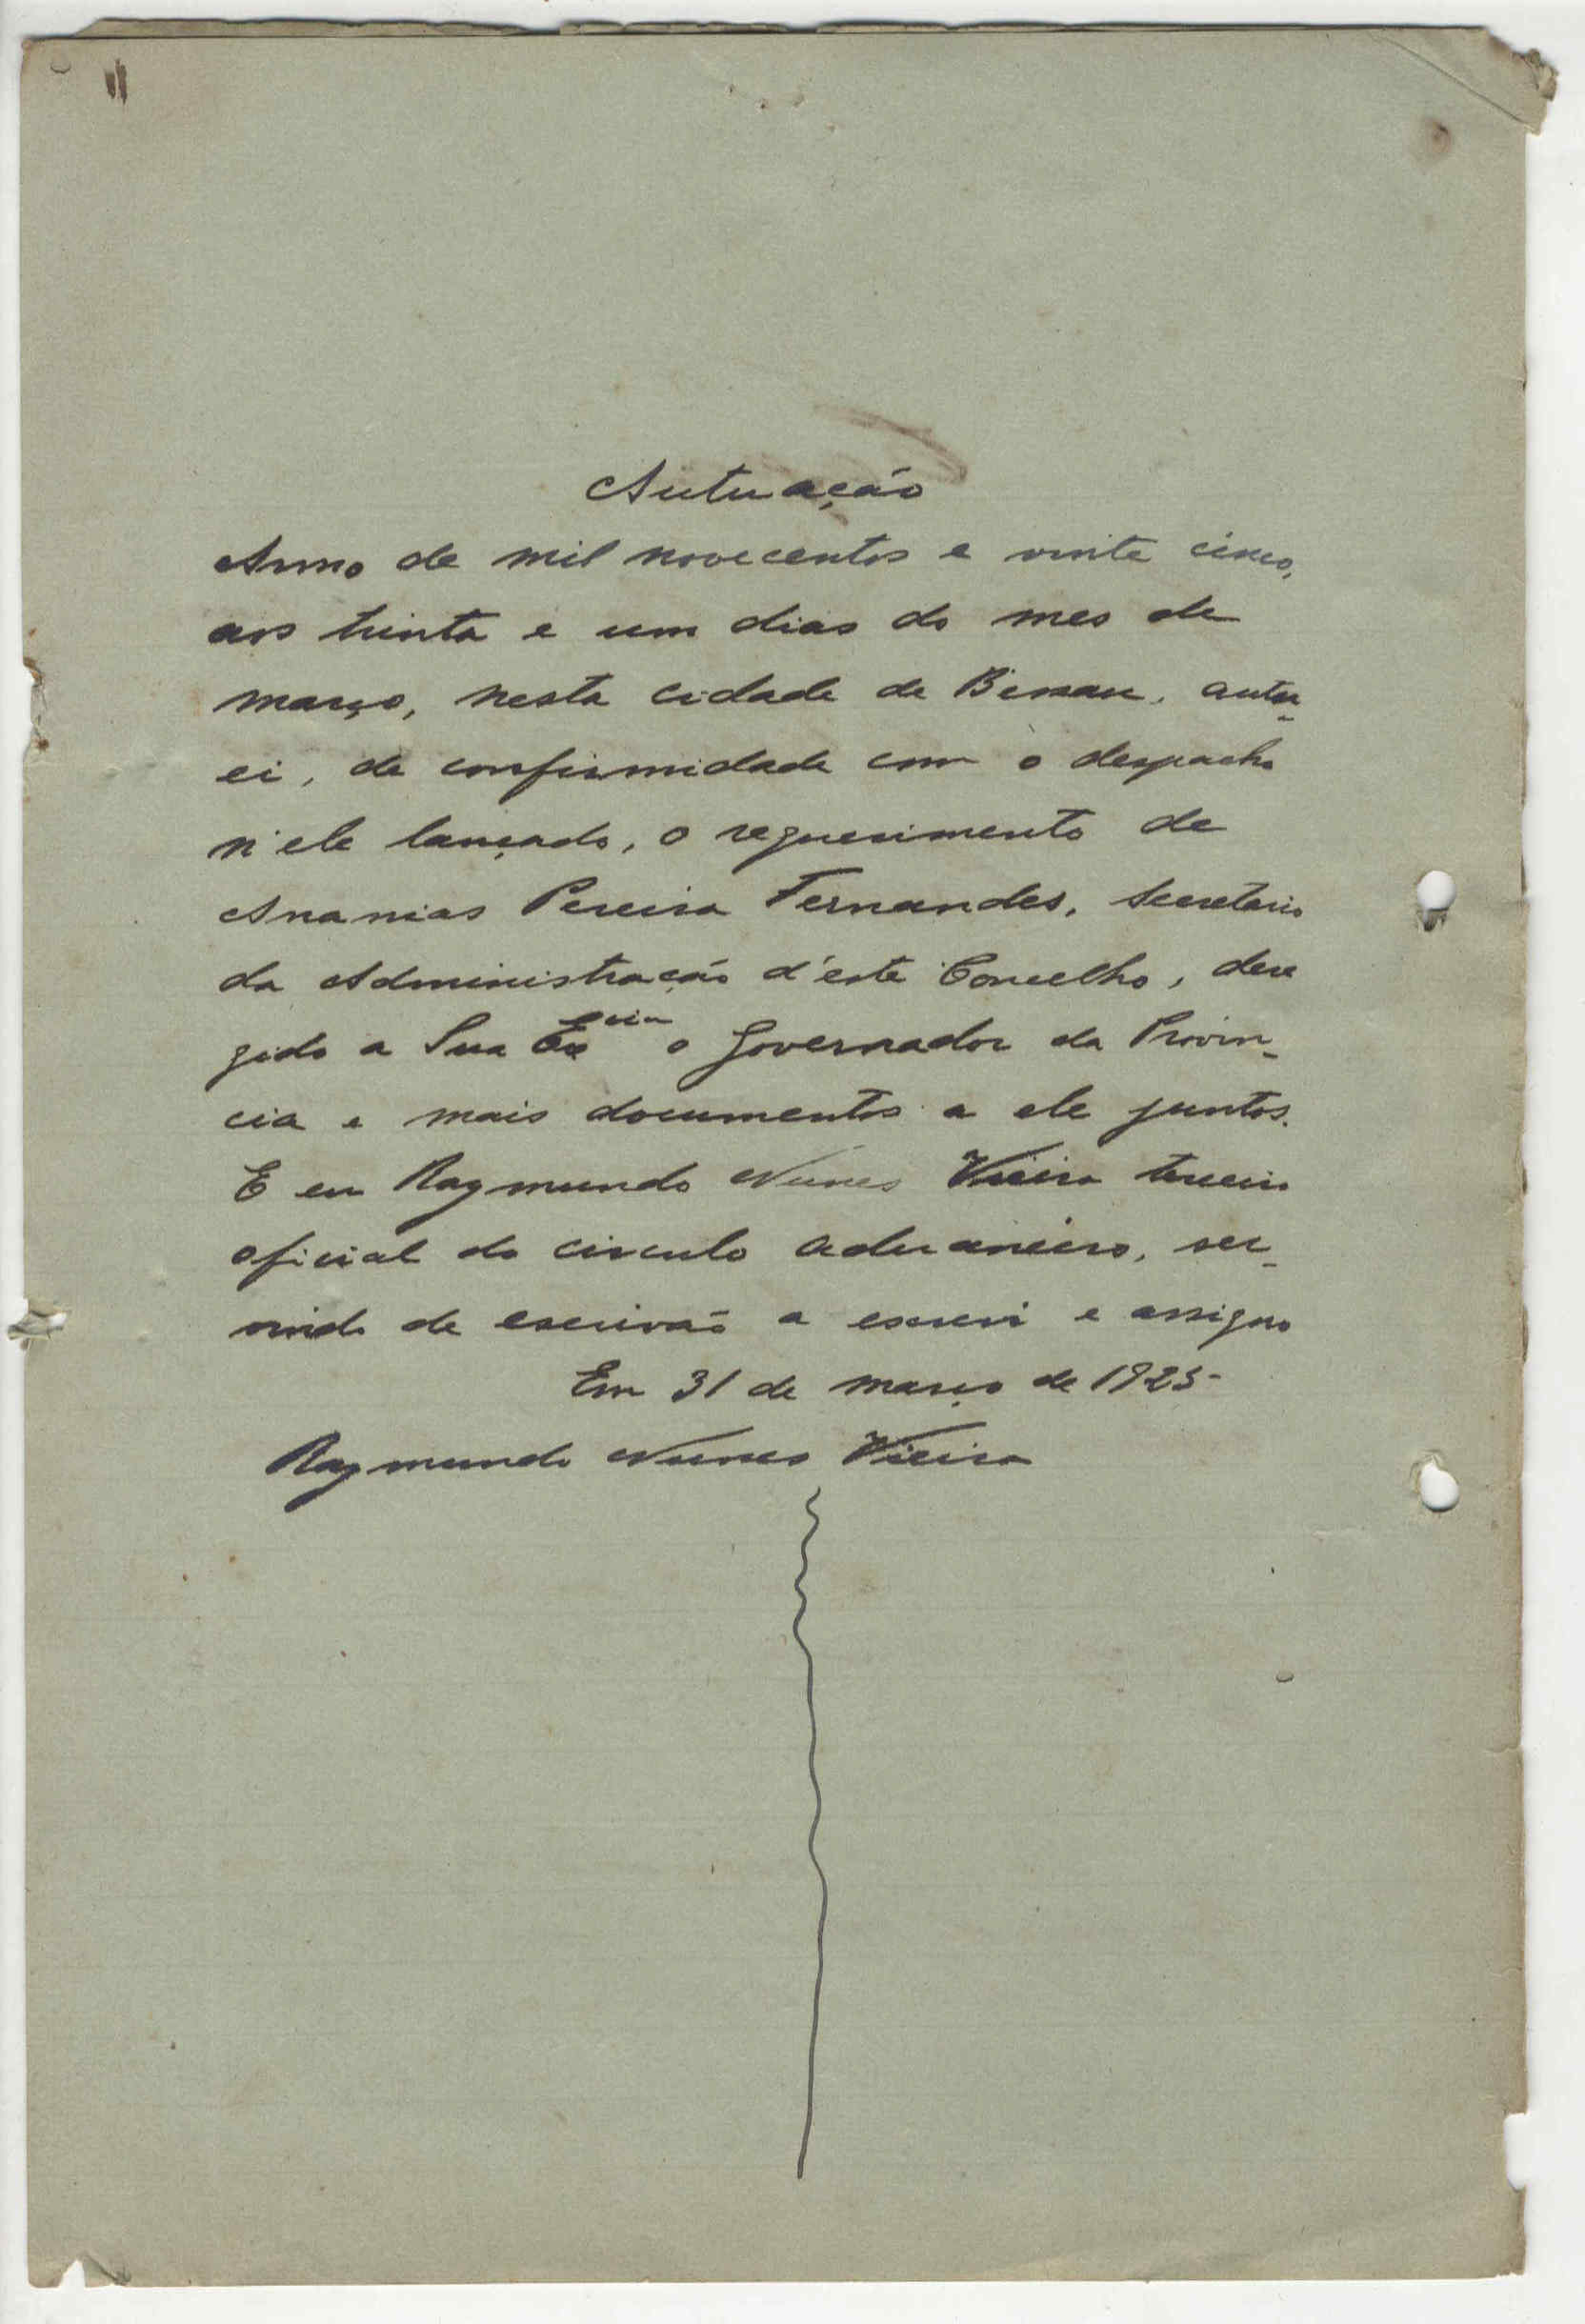 Autuação
Anno de mil novecentos e vinte cinco,
aos trinta e um dias do mes de
março, nesta cidade de Bissau, autu-
ei, de conformidade com o despacho
n'ele lançado, o requerimento de
Ananias Pereira Fernandes, Secretario
da Administração d'este Concelho, dere
gido a Sua Excia o Governador da Provin-
cia e mais documentos a ele juntos.
E eu Raymundo Nunes Vieira terceiro
oficial do circulo aduaneiro, ser-
vindo de escrivão a escrevi e assigno
Em 31 de março de 1925-
Raymundo Nunes Vieira